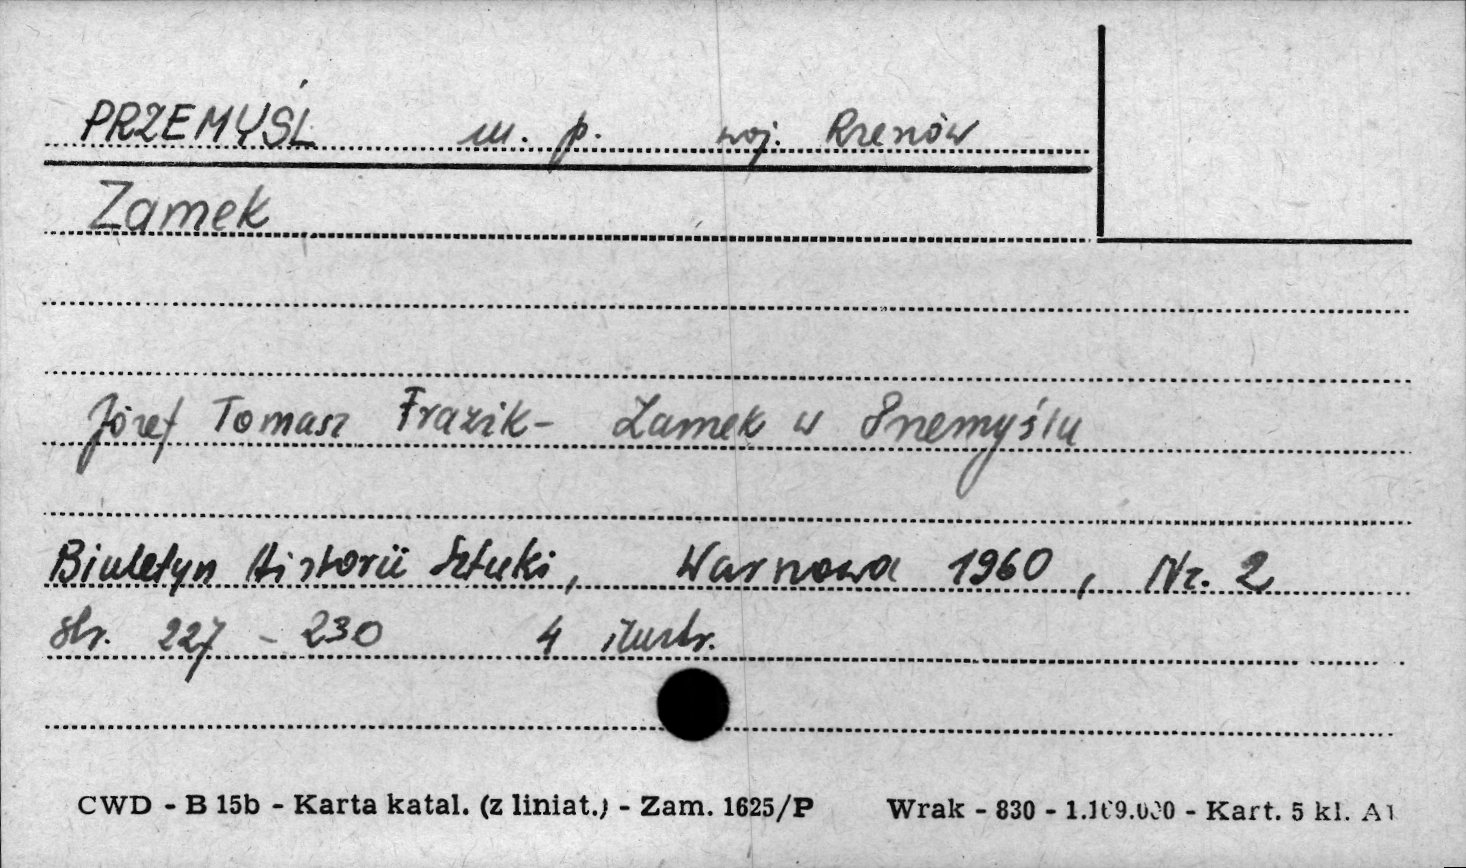 PRZEMYŚL m. p. woj. Rzeszów
Zamek
Józef Tomasz Frazik - Zamek w Przemyślu
Biuletyn Historii Sztuki, Warszawa 1960, Nr. 2
str. 227 - 230 4 ilustr.
CWD - B 15b - Karta katal. (z liniat.) - Zam. 1625/P Wrak - 830 - - Kart. 5 kl. A1